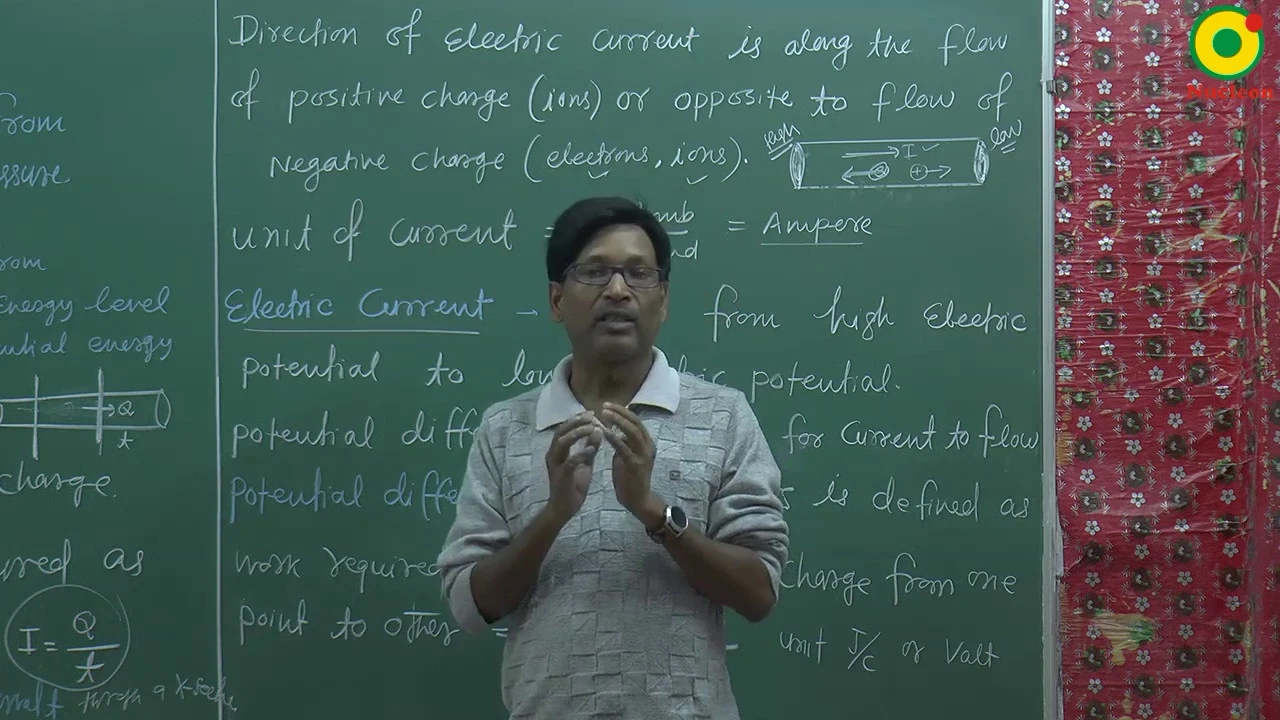 from
ssure
rom
Energy level
ntial energy
Q
t
charge.
ured as
I = Q/t
Direction of Electric current is along the flow
of positive charge (ions) or opposite to flow of
Negative charge (electrons, ions).
high
low
I
unit of current = mb/nd = Ampere
Electric Current → from high Electric
potential to low ric potential.
potential diffe for current to flow
potential diffe s is defined as
work required charge from one
point to other = unit J/C or Volt
Nucleon